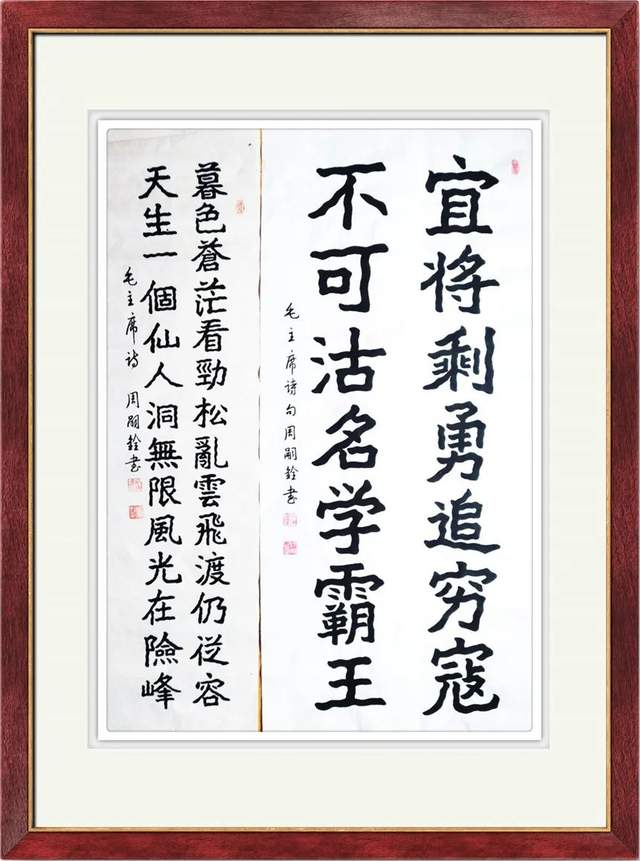 宜将剩勇追穷寇
不可沽名学霸王
毛主席诗句周嗣銓书
暮色蒼茫看勁松亂雲飛渡仍從容
天生一個仙人洞無限風光在險峰
毛主席诗 周嗣銓书